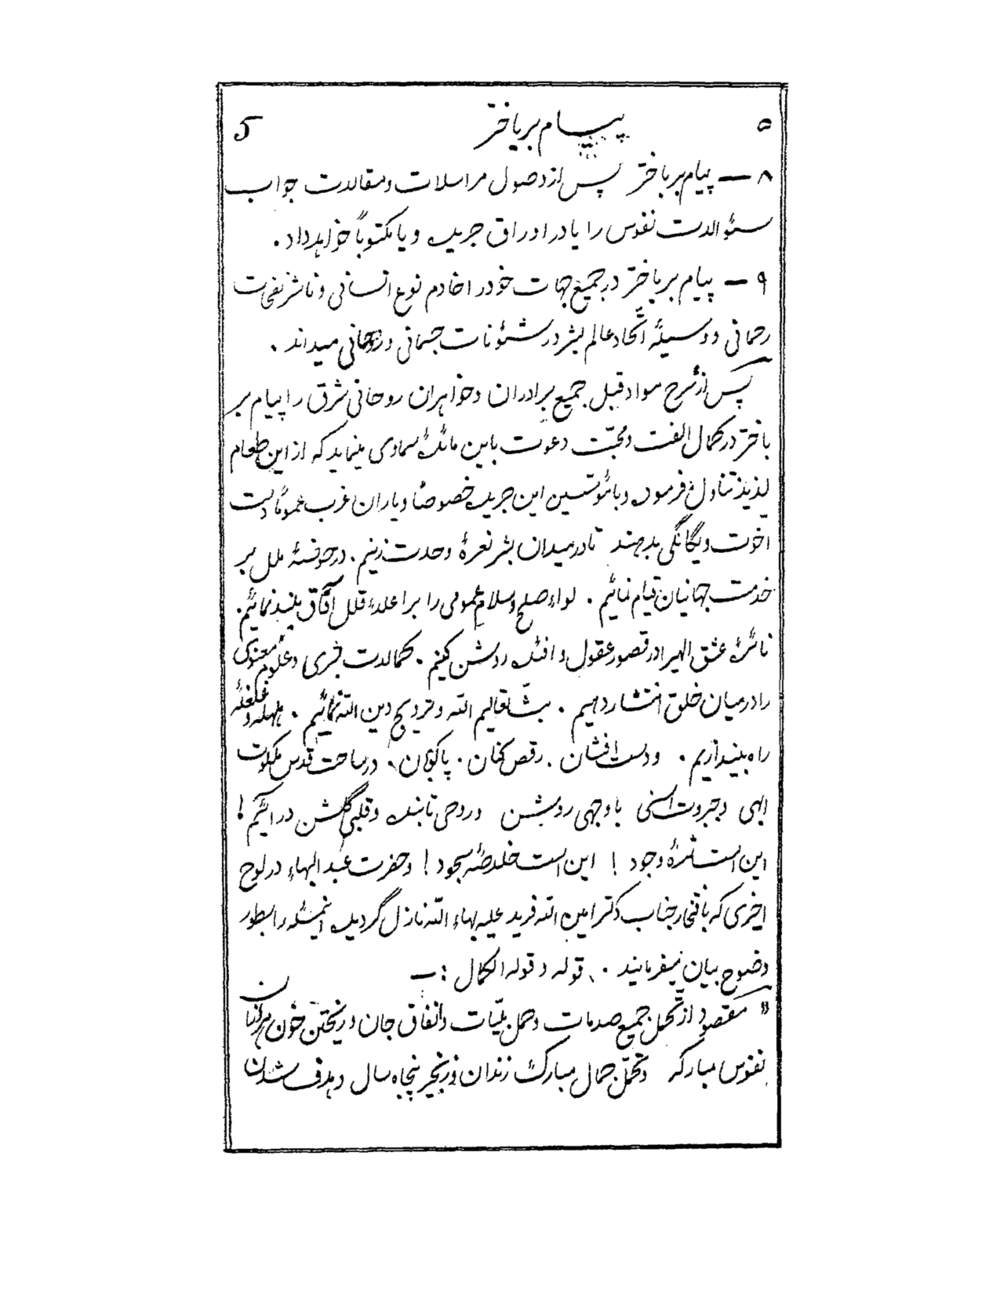 ۵ پیام بر باختر 5
۸ — پیام بر باختر پس از وصول مراسلات و مقالات جواب
سئوالات نفوس را یا در اوراق جریده و یا مکتوباً خواهد داد .
۹ — پیام بر باختر در جمیع جهات خود را خادم نوع انسانی و ناشر نفحات
رحمانی و وسیلهٔ اتّحاد عالم بشر در شئونات جسمانی و روحانی میداند .
پس از شرح مواد قبل جمیع برادران و خواهران روحانی شرق را پیام بر
باختر در کمال الفت و محبّت دعوت باین مائدهٔ سماوی مینماید که از این طعام
لذیذ تناول فرموده و با مؤسّسین این جریده خصوصاً و یاران غرب عموماً دست
اخوّت و یگانگی بدهند تا در میدان بشر نعرهٔ وحدت زنیم . در حوضهٔ ملل بر
خدمت جهانیان قیام نمائیم . لواء صلح و سلام عمومی را بر اعلاء قلل آفاق بلند نمائیم .
نائرهٔ عشق الهی را در قصور عقول و افئده روشن کنیم . کمالات فکری و علوم معنوی
را در میان خلق انتشار دهیم . بثّ تعالیم الله و ترویج دین الله نمائیم . هلهله و غلغله
راه بیندازیم . و دست افشان . رقص کنان . پاکوبان ، در ساحت قدس ملکوت
ابهی و جبروت اسنی با وجهی روشن و روحی تابنده و قلبی گلشن در آئیم !
این است ثمرهٔ وجود ! این است خلاصهٔ سجود ! و حضرت عبد البهاء در لوح
اخری که بافتخار جناب دکتر امین الله فرید علیه بهاء الله نازل گردیده اینمسئله را بطور
وضوح بیان میفرمایند . قوله و قوله الکمال : —
" مقصود از تحمّل جمیع صدمات و حمل بلیّات و انفاق جان و ریختن خون
نفوس مبارکه و تحمّل جمال مبارک زندان و زنجیر پنجاه سال و هدف شدن